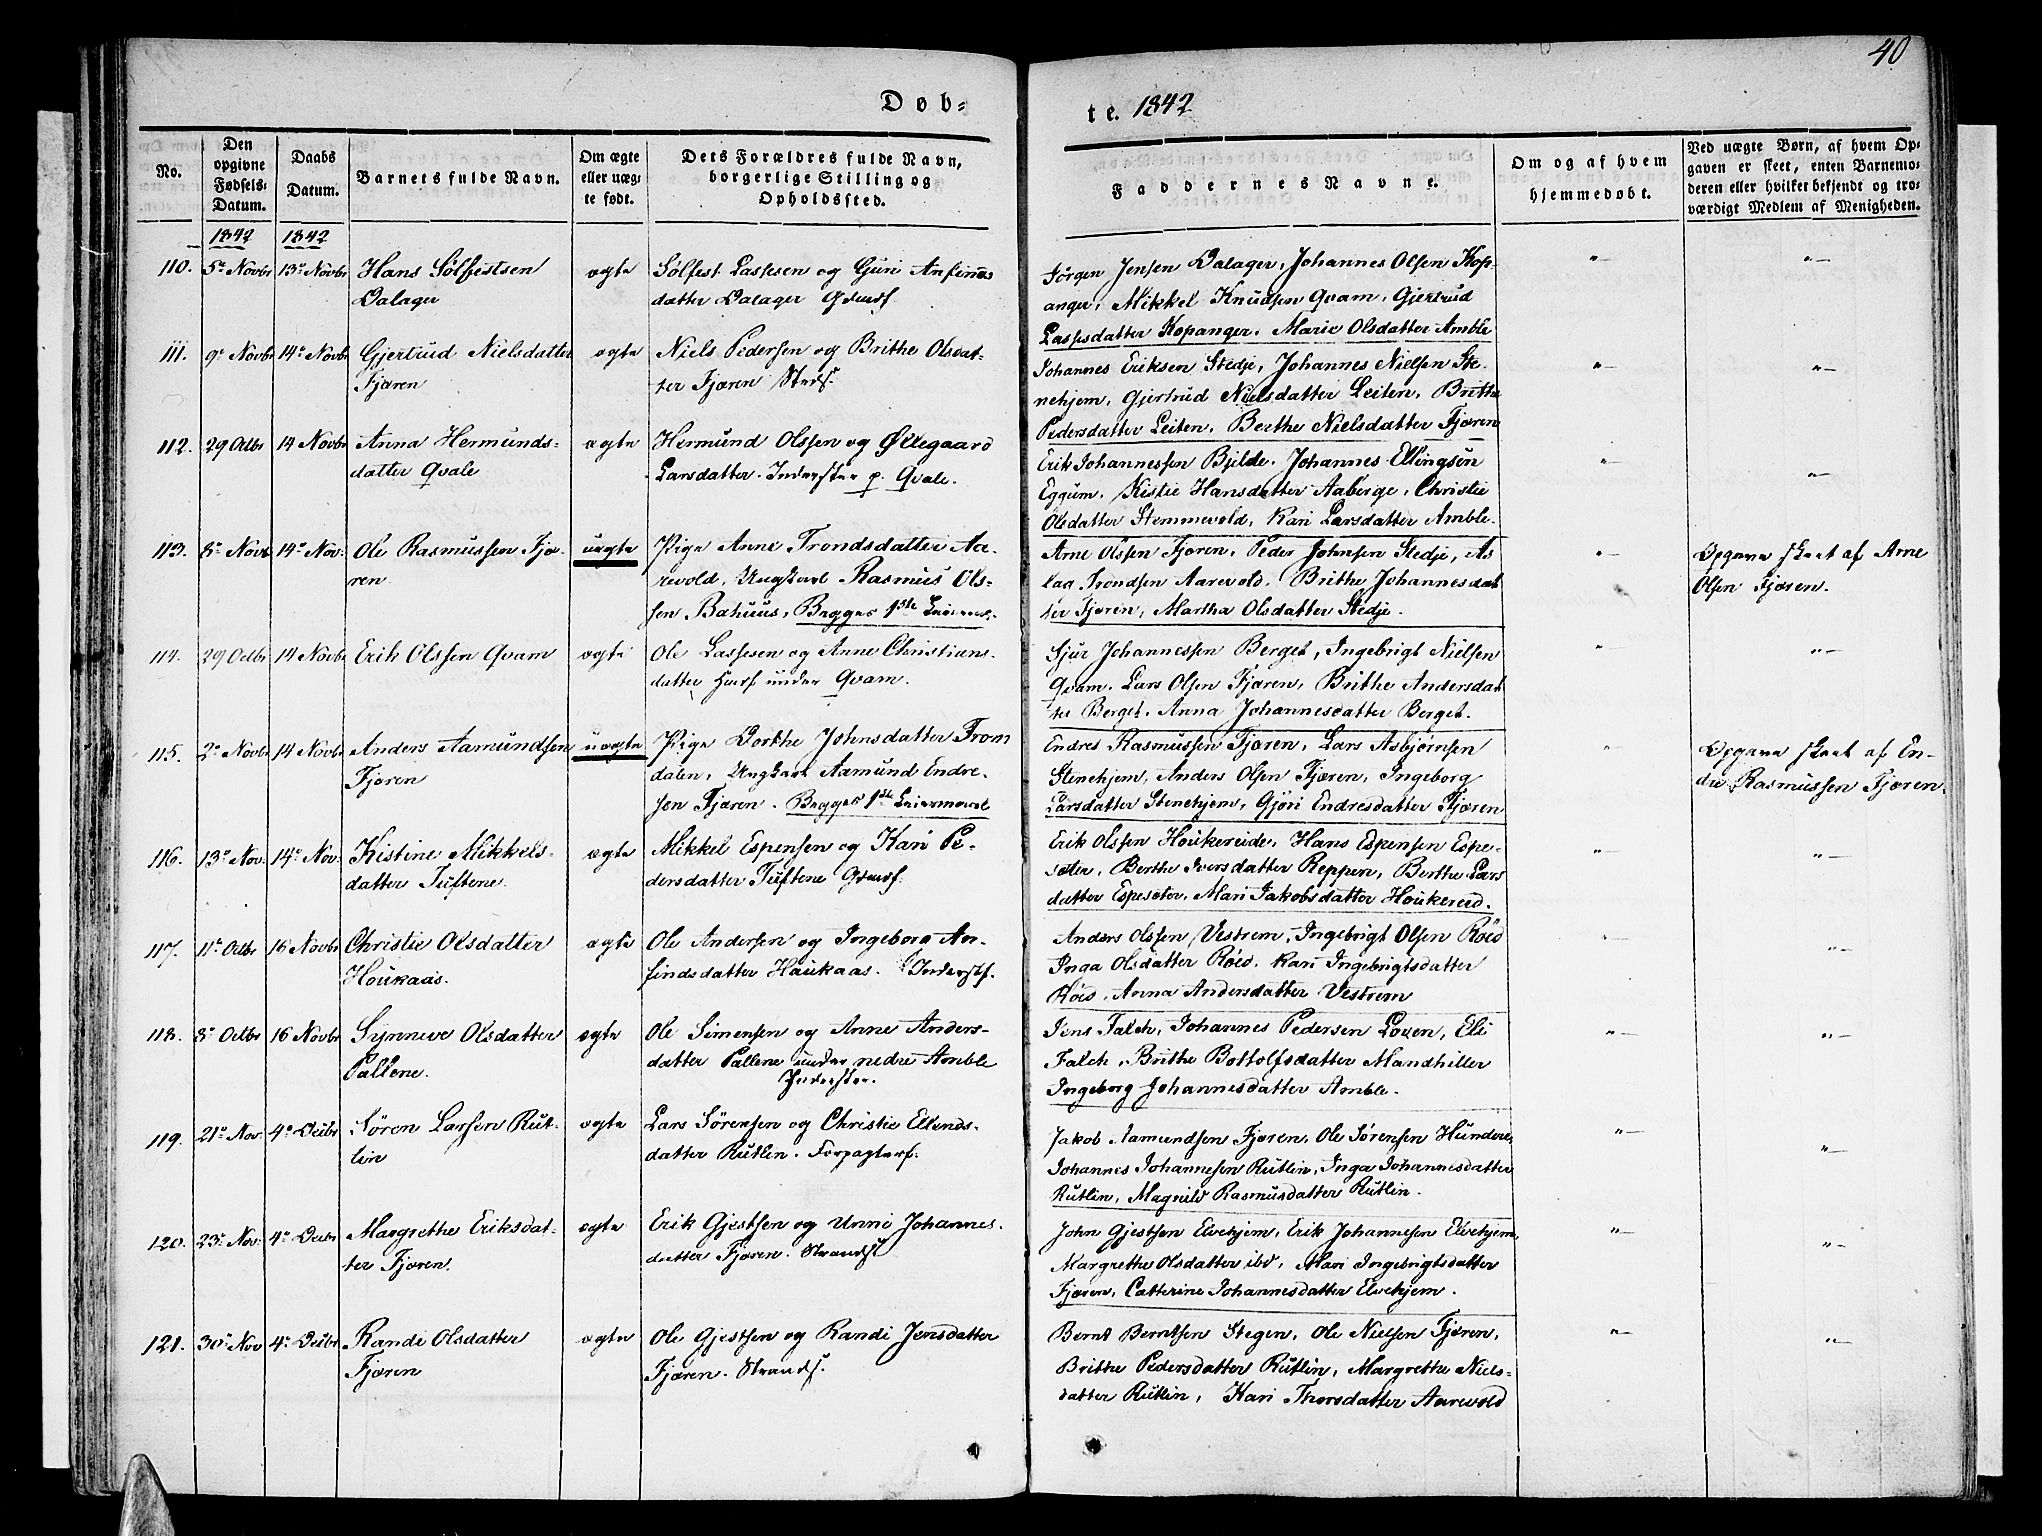 40
Døb-
te. 1842
No.
Den
opgivne
Fødsels-
Datum.
Daabs
Datum.
Barnets fulde Navn.
Om ægte
eller uæg-
te født.
Dets Forældres fulde Navn,
borgerlige Stilling og
Opholdssted.
Faddernes Navne.
Om og af hvem
hjemmedøbt.
Ved uægte Børn, af hvem Op-
gaven er skeet, enten Barnemo-
deren eller hvilket bekjendt og tro-
værdigt Medlem af Menigheden.
1842 1842
110. 5te Novbr 13de Novbr Hans Sølfestsen
Dalager
ægte
Sølfest Lassesen og Guri Anfinns
datter Dalager Gdmdf.
Jørgen Jensen Dalager, Johannes Olsen Kop-
anger, Mikkel Knudsen Qvam, Gjertrud
Lassesdatter Kopanger, Marie Olsdatter Amble
"— "—
111. 9de Novbr 14de Novbr Gjertrud Nielsdatter
Fjæren
ægte
Niels Pedersen og Brithe Olsdat-
ter Fjæren Strdf.
Johannes Eriksen Stedje, Johannes Nielsen Ste-
nehjem, Gjertrud Nielsdatter Leiten, Brithe
Pedersdatter Leiten, Berthe Nielsdatter Fjæren
"— "—
112. 29 Octbr 14 Novbr Anna Hermunds-
datter Qvale
ægte
Hermund Olssen og Øllegaard
Larsdatter. Inderster p. Qvale.
Erik Johannessen Bjelde. Johannes Ellingsen
Eggum. Kistie Hansdatter Aaberge, Christie
Olsdatter Stemmevold, Kari Larsdatter Amble.
"— "—
113. 8de Novbr 14de Nov. Ole Rasmussen Fjæ-
ren
uægte
Pige Anne Trondsdatter Aa-
revold, Ungkarl Rasmus Ols-
sen Bahuus, Begges 1ste Leierm.
Arne Olssen Fjæren, Peder Johnsen Stedje, As
lag Trondsen Aarevold. Brithe Johannesdat
ter Fjæren, Martha Olsdatter Stedje.
"—
Opgave skeet af Arne
Olsen Fjæren.
114. 29 Octbr 14 Novbr Erik Olssen Qvam
ægte
Ole Lassesen og Anne Christians-
datter Huusf under Qvam.
Sjur Johannessen Berget, Ingebrigt Nielsen
Qvam. Lars Olsen Fjæren, Brithe Andersdat
ter Berget. Anna Johannesdatter Berget.
"— "—
115. 2de Novbr 14 Novbr Anders Aamundsen
Fjæren
uægte
Pige Dorthe Johnsdatter From
dalen, Ungkarl Aamund Endre-
sen Fjæren. Begges 1ste Leiermaal
Endres Rasmussen Fjæren, Lars Asbjørnsen
Stenehjem, Anders Olsen Fjæren, Ingeborg
Larsdatter Stenehjem, Gjøri Endresdatter Fjæren
"—
Opgave skeet af En-
dre Rasmussen Fjæren.
116. 13de Nov. 14de Nov. Kistine Mikkels-
datter Tuftene.
ægte
Mikkel Espensen og Kari Pe-
dersdatter Tuftene Gdmdf.
Erik Olssen Houkereide, Hans Espensen Espe-
sæter, Berthe Iversdatter Reppen, Berthe Lars
datter Espesæter, Mari Jakobsdatter Houkereid.
"— "—
117. 11te Octbr 16 Novbr Christie Olsdatter
Houkaas.
ægte
Ole Andersen og Ingeborg An-
findsdatter Haukaas. Inderstf.
Anders Olssen Vestrem, Ingebrigt Olsen Röed
Inga Olsdatter Röed. Kari Ingebrigtsdatter
Röed, Anna Andersdatter Vestrem
"— "—
118. 8de Octbr 16 Novbr Synneve Olsdatter
Pallene.
ægte
Ole Simensen og Anne Anders-
datter Pallene under nedre Amble
Inderster.
Jens Falch, Johannes Pedersen Loven, Eli
Falch, Brithe Bottolfsdatter Mandhiller
Ingeborg Johannesdatter Amble.
"— "—
119. 21de Nov. 4de Decbr Søren Larsen Rut-
lin
ægte
Lars Sørensen og Christie Ellends-
datter Rutlin. Forpagterf.
Jakob Aamundsen Fjæren, Ole Sørensen Hundere,
Johannes Johannesen Rutlin, Inga Johannesdatter
Rutlin, Magnild Rasmusdatter Rutlin.
"— "—
120. 23de Nov. 4de Decbr Margrethe Eriksdat-
ter Fjæren.
ægte
Erik Gjestsen og Unni Johannes-
datter Fjæren. Strandsf.
John Gjestsen Elvehjem, Erik Johannesen Elvehjem,
Margrethe Olsdatter ibd, Mari Ingebrigtsdatter
Fjæren, Catterine Johannesdatter Elvehjem.
"— "—
121. 30de Nov 4de Decbr Randi Olsdatter
Fjæren
ægte
Ole Gjestsen og Randi Jensdatter
Fjæren. Strandsf.
Bernt Berntsen Stegen, Ole Nielsen Fjæren,
Brithe Pedersdatter Rutlin, Margrethe Niels-
datter Rutlin, Kari Thorsdatter Aarevold
"— "—